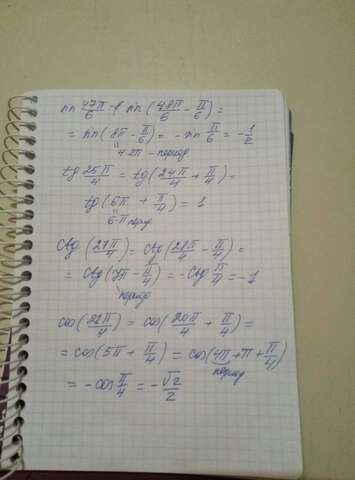 sin 47π/6 = sin (48π/6 - π/6) =
= sin(8π - π/6) = - sin π/6 = - 1/2
4·2π - период
tg 25π/4 = tg(24π/4 + π/4) =
tg(6π + π/4) = 1
6·π период
ctg (27π/4) = ctg (28π/4 - π/4) =
= ctg(7π - π/4) = - ctg π/4 = -1
период
cos(21π/4) = cos(20π/4 + π/4) =
= cos(5π + π/4) = cos(4π + π + π/4)
период
= - cos π/4 = - √2/2